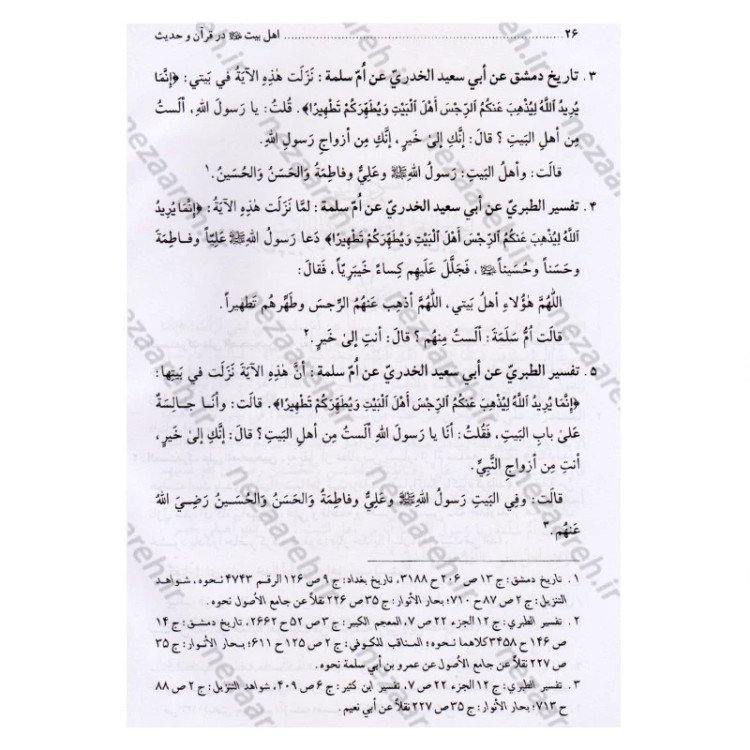 ۲۶ ........ اهل بیت ﷺ در قرآن و حدیث
۳. تاريخ دمشق عن أبي سعيد الخدريّ عن أُمّ سلمة: نَزَلَت هٰذِهِ الآيَةُ في بَيتي: ﴿إِنَّمَا
يُرِيدُ ٱللَّهُ لِيُذْهِبَ عَنكُمُ ٱلرِّجْسَ أَهْلَ ٱلْبَيْتِ وَيُطَهِّرَكُمْ تَطْهِيرًا﴾. قُلتُ: يا رَسولَ اللهِ، ألَستُ
مِن أهلِ البَيتِ؟ قالَ: إنَّكِ إلىٰ خَيرٍ، إنَّكِ مِن أزواجِ رَسولِ اللهِ.
قالَت: وأهلُ البَيتِ: رَسولُ اللهِ ﷺ وعَلِيٌّ وفاطِمَةُ وَالحَسَنُ وَالحُسَينُ.۱
۴. تفسير الطبريّ عن أبي سعيد الخدريّ عن أُمّ سلمة: لَمّا نَزَلَت هٰذِهِ الآيَةُ: ﴿إِنَّمَا يُرِيدُ
ٱللَّهُ لِيُذْهِبَ عَنكُمُ ٱلرِّجْسَ أَهْلَ ٱلْبَيْتِ وَيُطَهِّرَكُمْ تَطْهِيرًا﴾ دَعا رَسولُ اللهِ ﷺ عَلِيّاً وفاطِمَةَ
وحَسَناً وحُسَيناً ﷺ، فَجَلَّلَ عَلَيهِم كِساءً خَيبَرِيّاً، فَقالَ:
اللّٰهُمَّ هٰؤُلاءِ أهلُ بَيتي، اللّٰهُمَّ أذهِب عَنهُمُ الرِّجسَ وطَهِّرهُم تَطهيراً.
قالَت أُمُّ سَلَمَةَ: ألَستُ مِنهُم؟ قالَ: أنتِ إلىٰ خَيرٍ.۲
۵. تفسير الطبريّ عن أبي سعيد الخدريّ عن أُمّ سلمة: أنَّ هٰذِهِ الآيَةَ نَزَلَت في بَيتِها:
﴿إِنَّمَا يُرِيدُ ٱللَّهُ لِيُذْهِبَ عَنكُمُ ٱلرِّجْسَ أَهْلَ ٱلْبَيْتِ وَيُطَهِّرَكُمْ تَطْهِيرًا﴾. قالَت: وأنَا جالِسَةٌ
عَلىٰ بابِ البَيتِ، فَقُلتُ: أنَا يا رَسولَ اللهِ ألَستُ مِن أهلِ البَيتِ؟ قالَ: إنَّكِ إلىٰ خَيرٍ،
أنتِ مِن أزواجِ النَّبِيِّ.
قالَت: وفِي البَيتِ رَسولُ اللهِ ﷺ وعَلِيٌّ وفاطِمَةُ وَالحَسَنُ وَالحُسَينُ رَضِيَ اللهُ
عَنهُم.۳
۱. تاريخ دمشق: ج ۱۳ ص ۲۰۶ ح ۳۱۸۸، تاريخ بغداد: ج ۹ ص ۱۲۶ الرقم ۴۷۴۳ نحوه، شواهد
التنزيل: ج ۲ ص ۸۷ ح ۷۱۰؛ بحار الأنوار: ج ۳۵ ص ۲۲۶ نقلاً عن جامع الأصول نحوه.
۲. تفسير الطبري: ج ۱۲ الجزء ۲۲ ص ۷، المعجم الكبير: ج ۳ ص ۵۲ ح ۲۶۶۲، تاريخ دمشق: ج ۱۴
ص ۱۴۶ ح ۳۴۵۸ كلاهما نحوه؛ المناقب للكوفي: ج ۲ ص ۱۲۵ ح ۶۱۱؛ بحار الأنوار: ج ۳۵
ص ۲۲۷ نقلاً عن جامع الأصول عن عمرو بن أبي سلمة نحوه.
۳. تفسير الطبري: ج ۱۲ الجزء ۲۲ ص ۷، تفسير ابن كثير: ج ۶ ص ۴۰۹، شواهد التنزيل: ج ۲ ص ۸۸
ح ۷۱۳؛ بحار الأنوار: ج ۳۵ ص ۲۲۷ نقلاً عن أبي نعيم.
nezaareh.ir